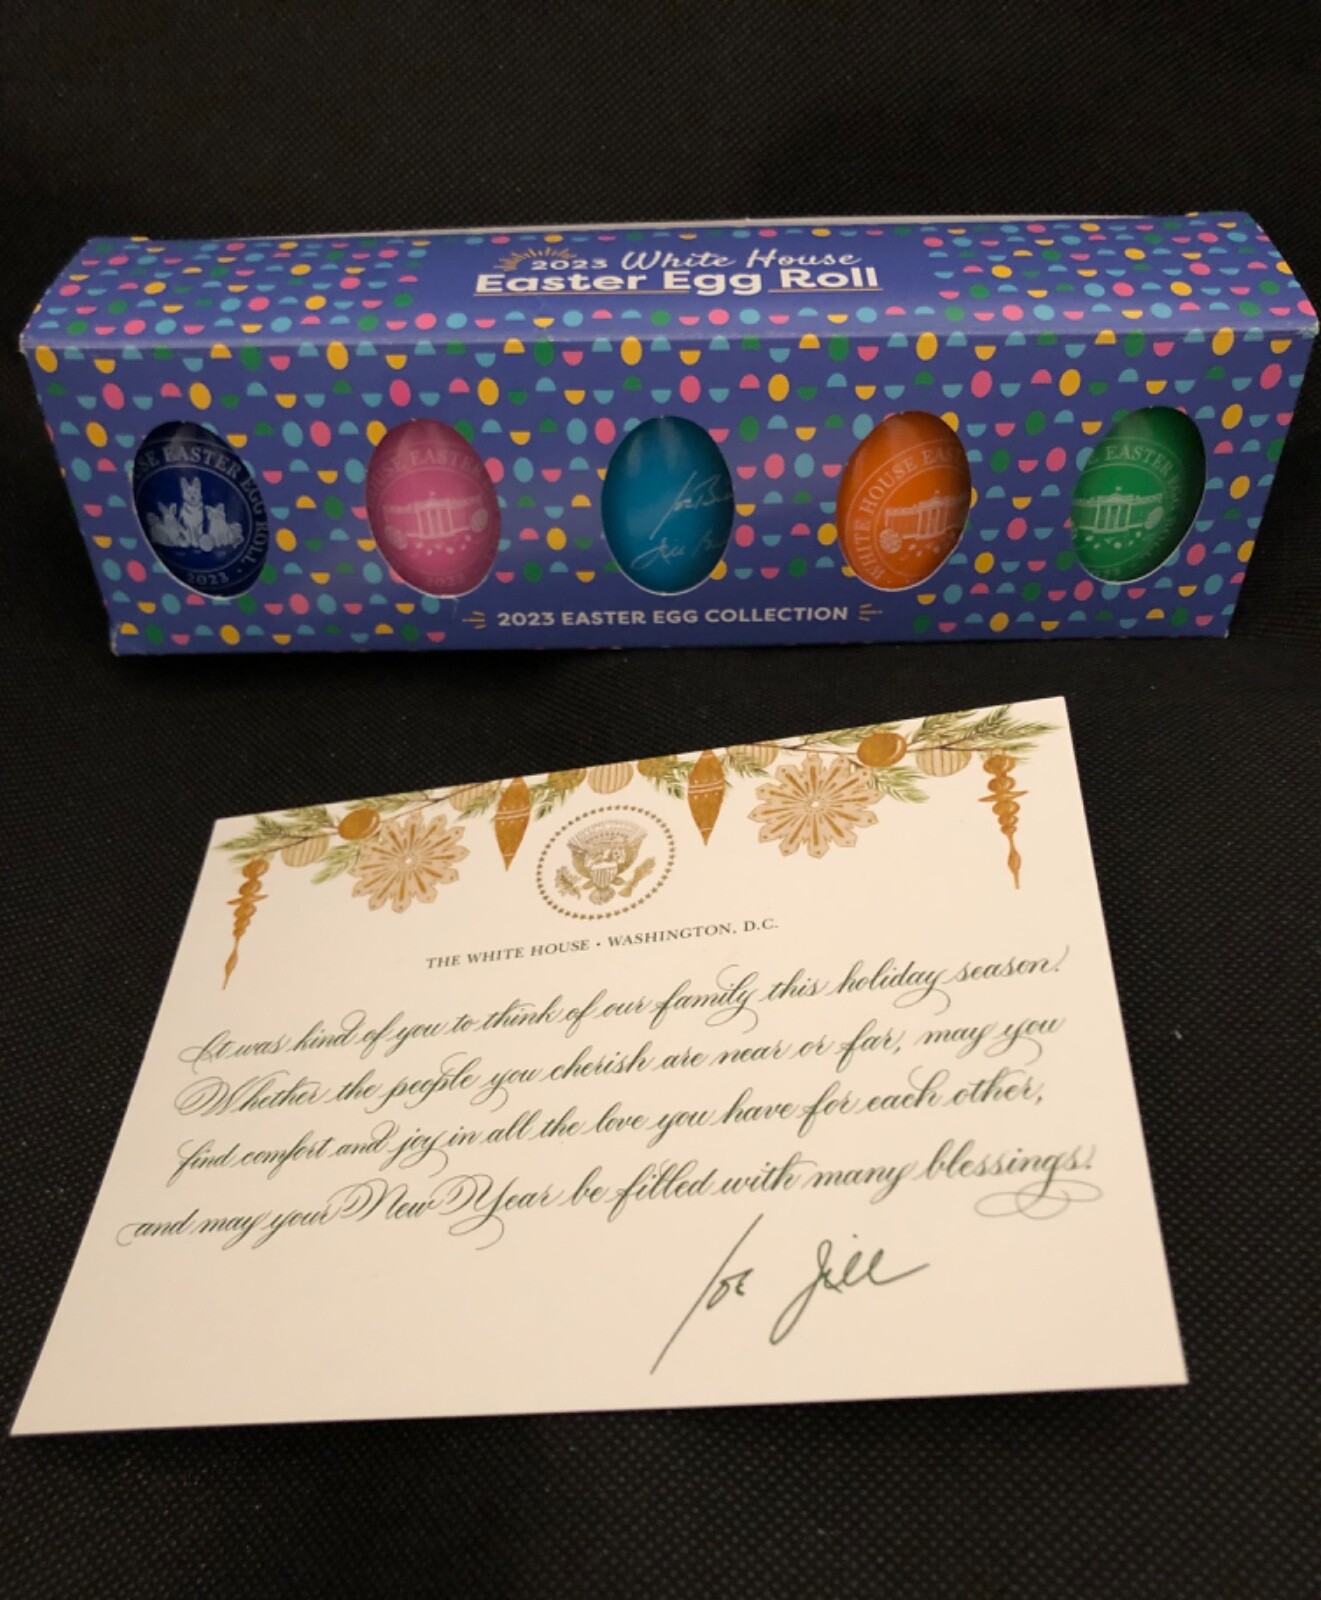 2023 White House
Easter Egg Roll
SE EASTER EGG ROLL ·
2023
SE EASTE
2023
Joe B
Jill B
WHITE HOUSE EAS
E EASTER EG
2023 EASTER EGG COLLECTION
THE WHITE HOUSE · WASHINGTON, D.C.
It was kind of you to think of our family this holiday season.
Whether the people you cherish are near or far, may you
find comfort and joy in all the love you have for each other,
and may your New Year be filled with many blessings.
Joe Jill